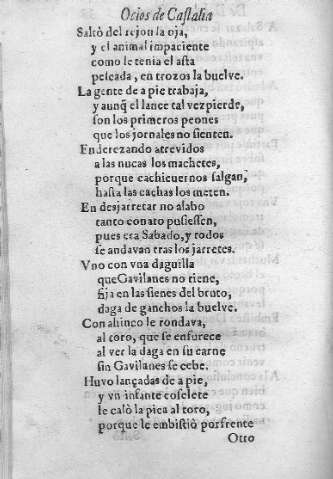 Ocios de Castalia
Saltò del rejon la oja,
y el animal impaciente
como le tenia el asta
peleada, en trozos la buelve.
La gente de a pie trabaja,
y aunq̃ el lance tal vez pierde,
son los primeros peones
que los jornales no sienten.
Enderezando atrevidos
a las nucas los machetes,
porque cachicuernos salgan,
hasta las cachas los meten.
En desjarretar no alabo
tanto conato pusiessen,
pues era Sabado, y todos
se andavan tras los jarretes.
Vno con vna daguilla
que Gavilanes no tiene,
fija en las sienes del bruto,
daga de ganchos la buelve.
Con ahinco le rondava,
al toro, que se enfurece
al ver la daga en su carne
sin Gavilanes se cebe.
Huvo lançadas de a pie,
y vn infante coselete
le calò la pica al toro,
porque le embistiò por frente
Otro